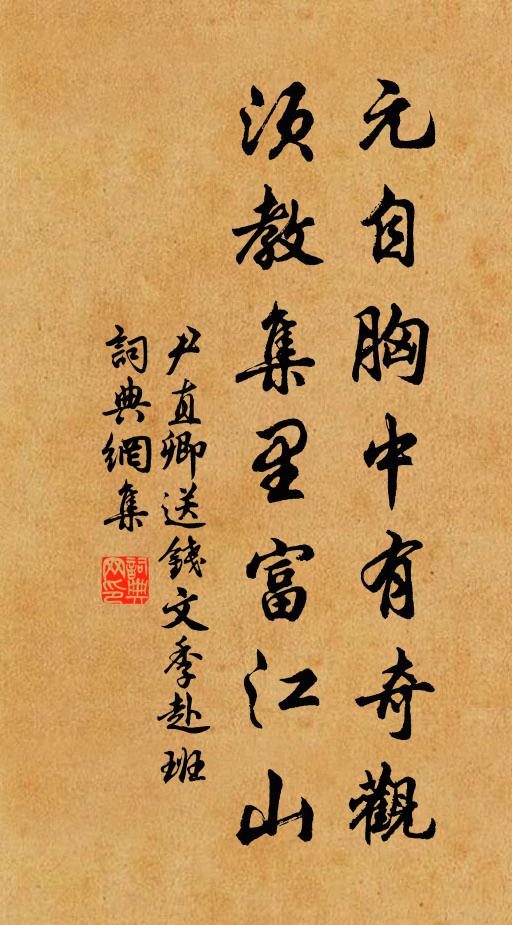 元自胸中有奇觀
須教集里富江山
尹直卿送錢文季赴班
詞典網集
詞典网印